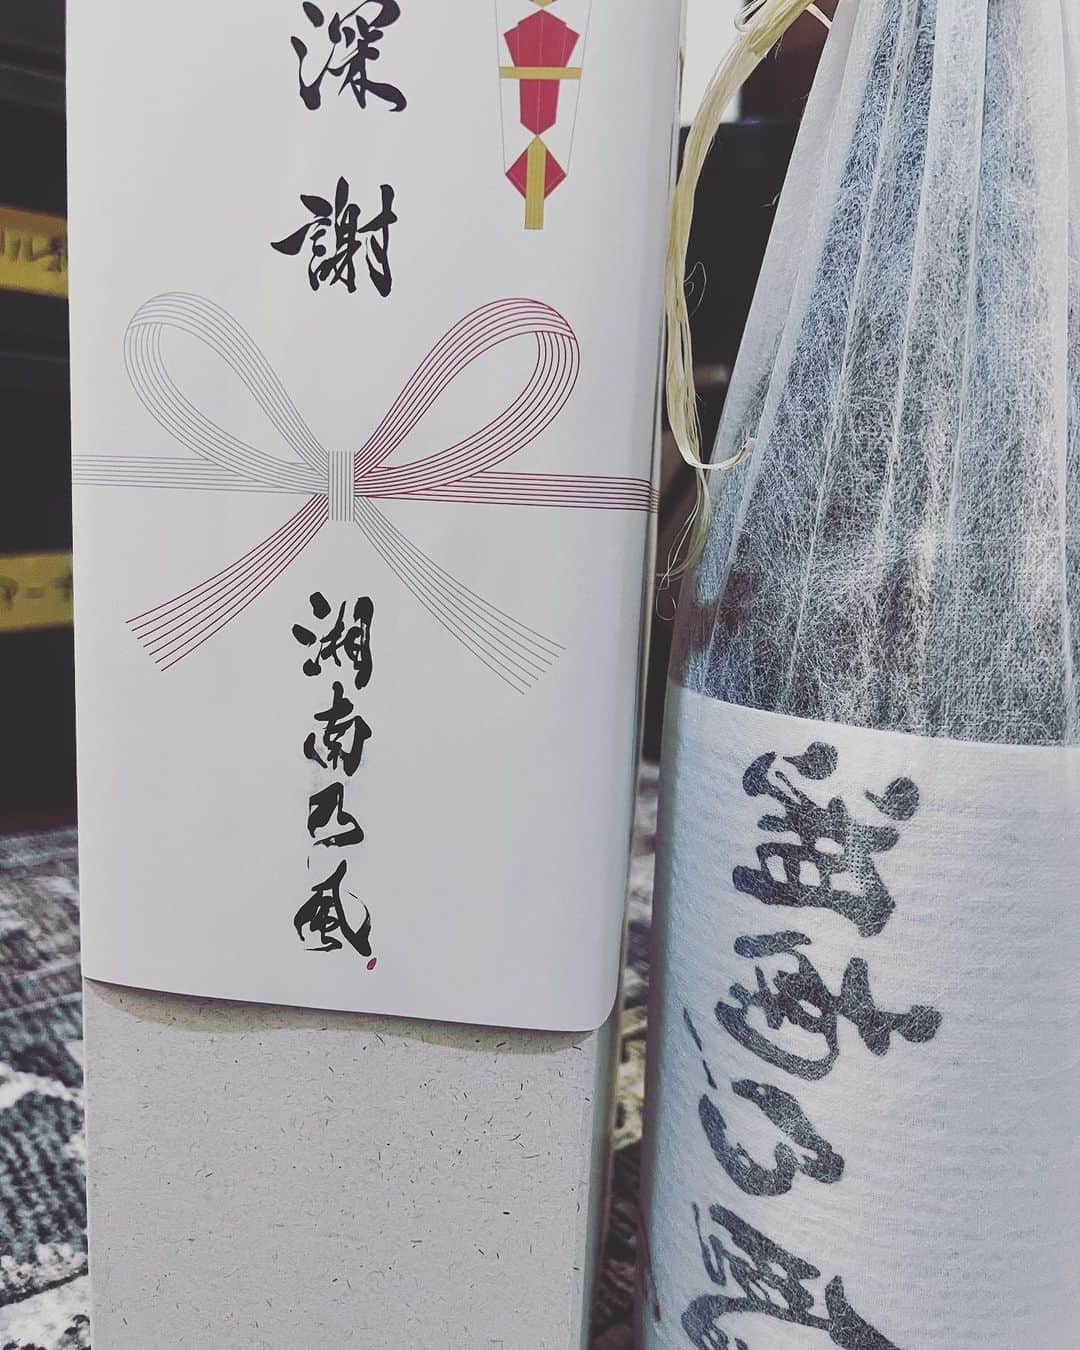 深謝
湘南乃風
湘南乃風